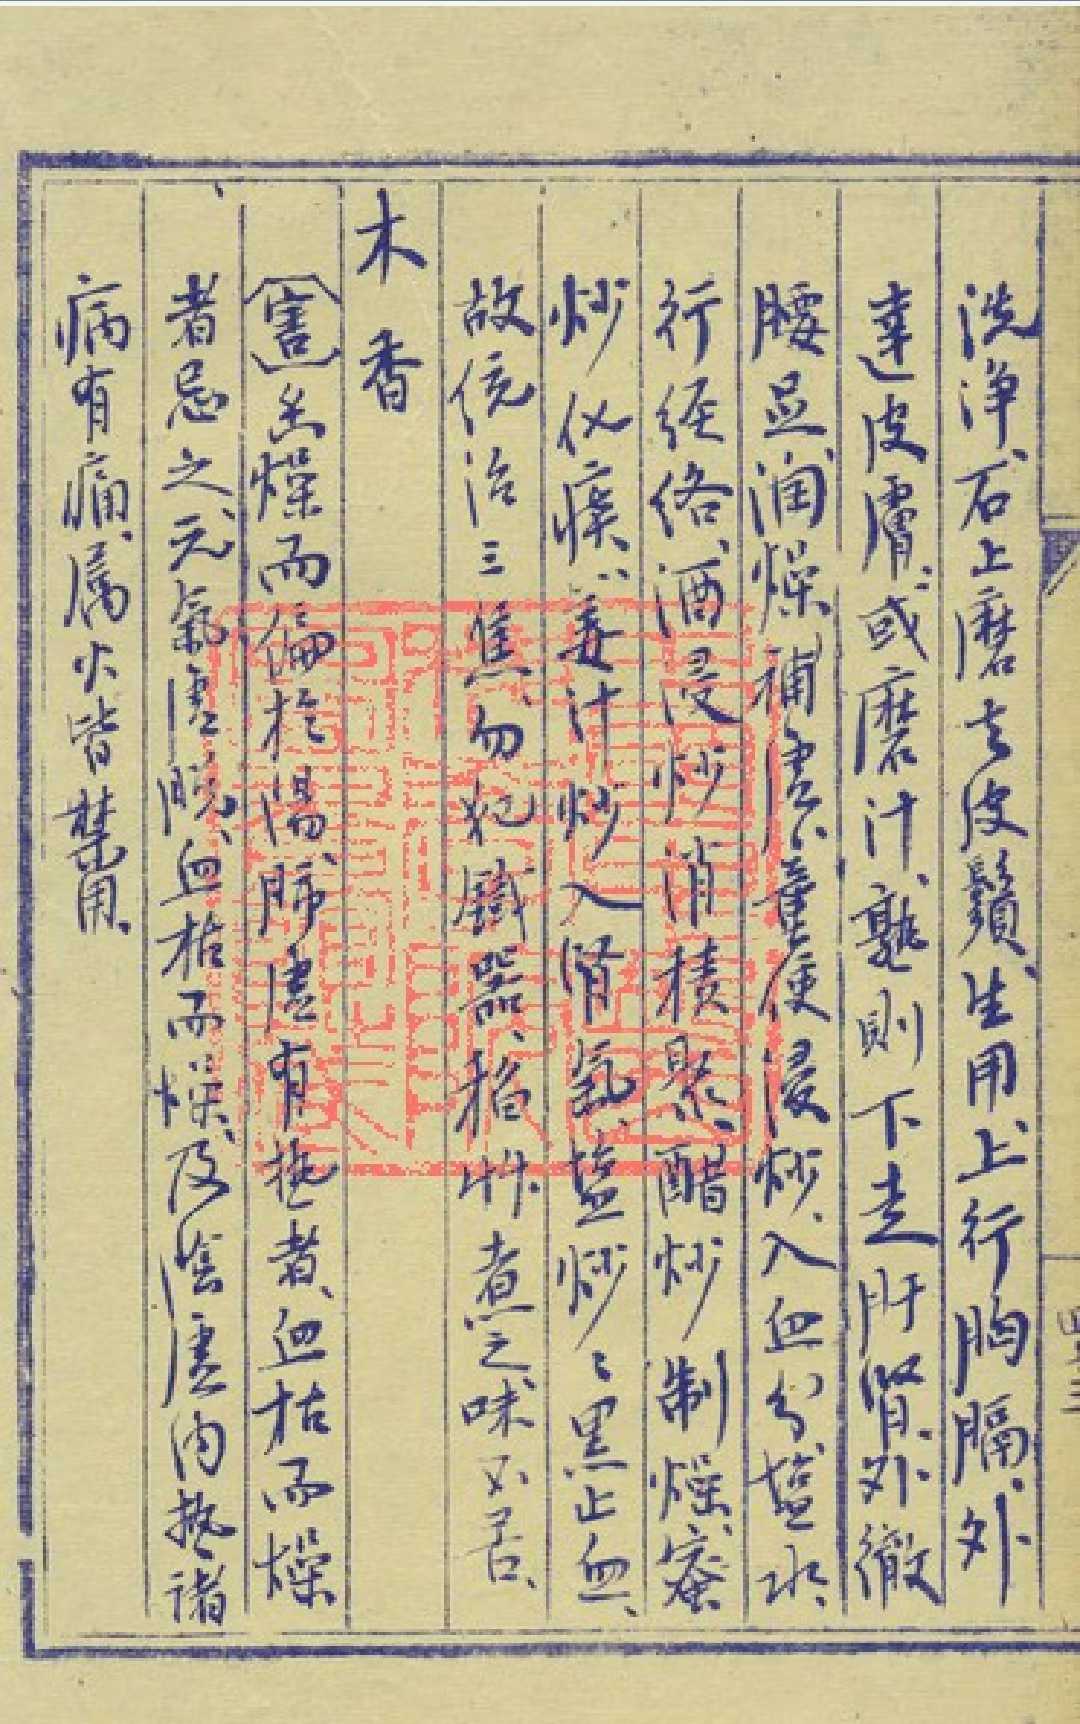 洗淨、石上磨去皮鬚、生用、上行胸膈、外
達皮膚、或磨汁、熟則下走肝腎、外徹
腰足、润燥補虚、童便浸炒、入血分、塩水
行经络、酒浸炒消積聚、醋炒制燥、蜜
炒化痰、姜汁炒入腎氣、塩炒、炒黑止血、
故统治三焦、勿犯鐵器、稻艸煮之、味不苦、
木香
害 燥而偏於陽、肺虚有热者、血枯而燥
者忌之、元氣虚脱、血枯而燥、及陰虚内热、諸
病有痛、属火皆禁用、
四十三